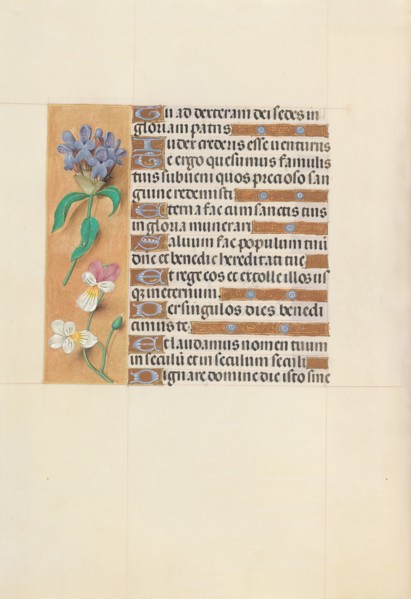 Tu ad dexteram dei sedes in
gloriam patris
Iudex crederis esse venturus
Te ergo quesumus famulis
tuis subveni quos precioso san
guine redemisti
Eterna fac cum sanctis tuis
in gloria munerari
Salvum fac populum tuū
dn̄e et benedic hereditati tue
Et rege eos et extolle illos us
q in eternum
Per singulos dies benedi
cimus te
Et laudamus nomen tuum
in seculū et in seculum seculi
Dignare domine die isto sine